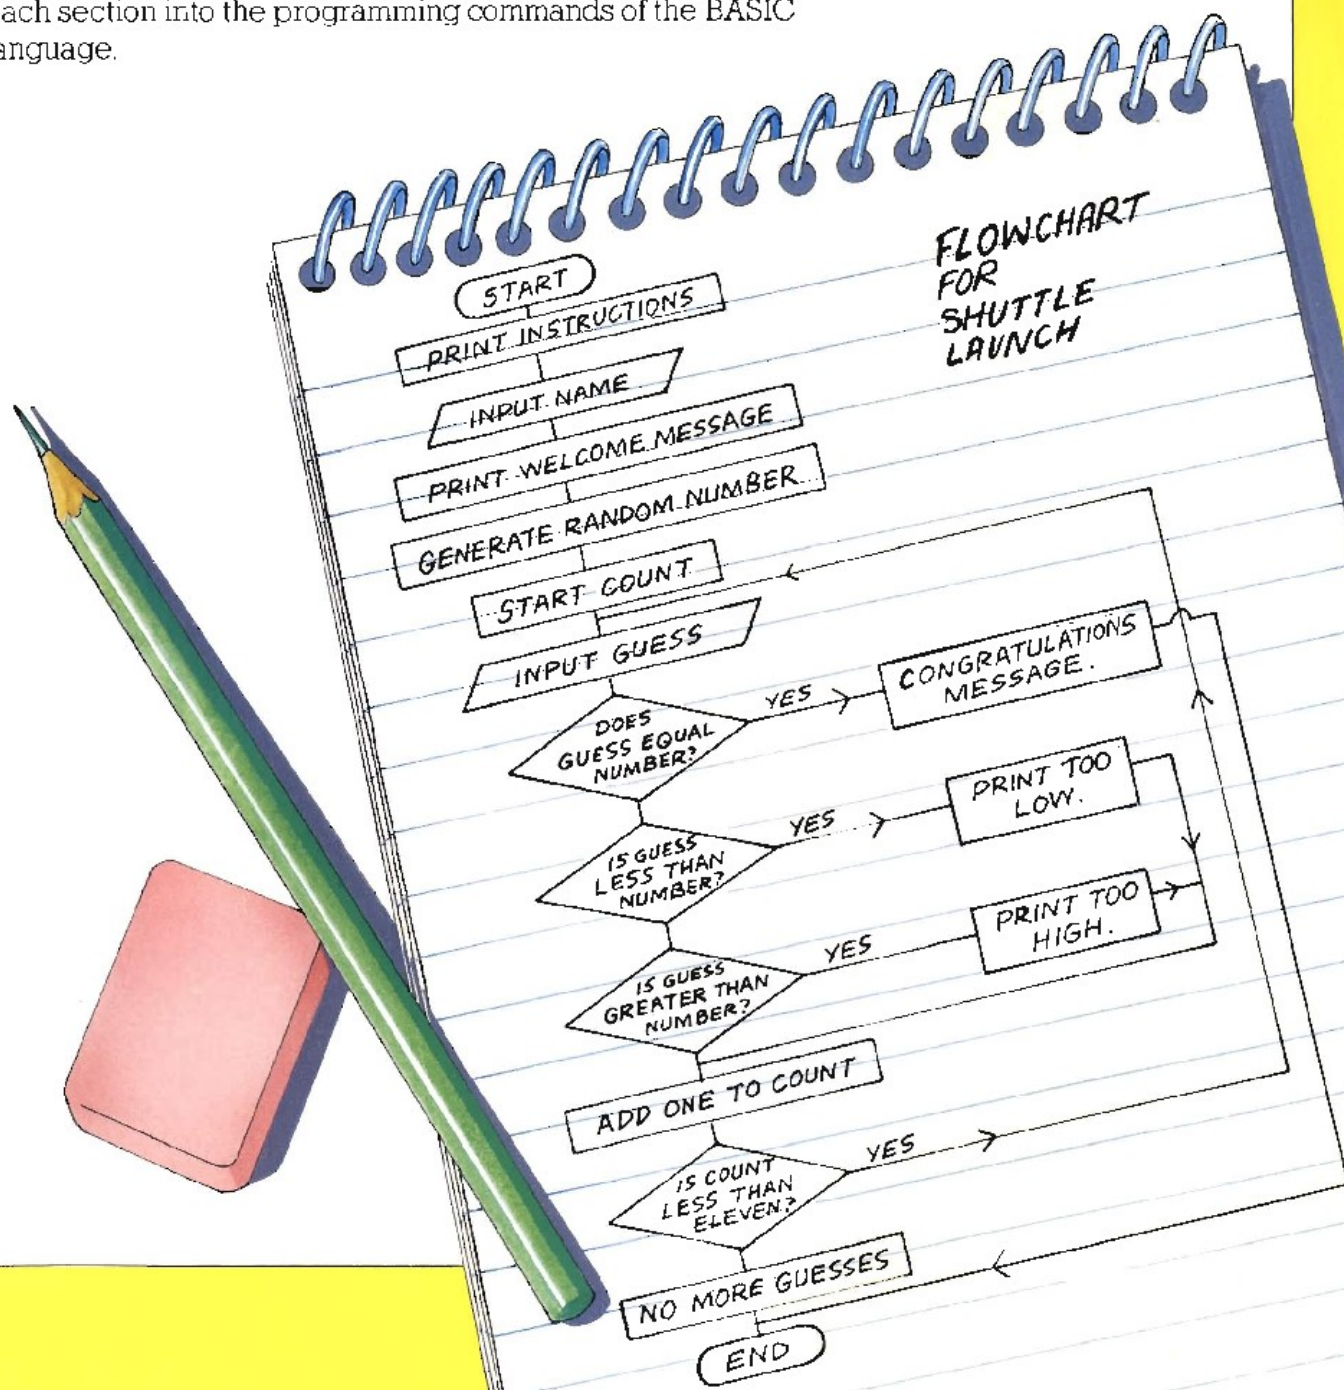 ach section into the programming commands of the BASIC
anguage.
FLOWCHART
FOR
SHUTTLE
LAUNCH
START
PRINT INSTRUCTIONS
INPUT NAME
PRINT WELCOME MESSAGE
GENERATE RANDOM NUMBER
START COUNT
INPUT GUESS
DOES
GUESS EQUAL
NUMBER?
YES
CONGRATULATIONS
MESSAGE.
IS GUESS
LESS THAN
NUMBER?
YES
PRINT TOO
LOW.
IS GUESS
GREATER THAN
NUMBER?
YES
PRINT TOO
HIGH.
ADD ONE TO COUNT
IS COUNT
LESS THAN
ELEVEN?
YES
NO MORE GUESSES
END